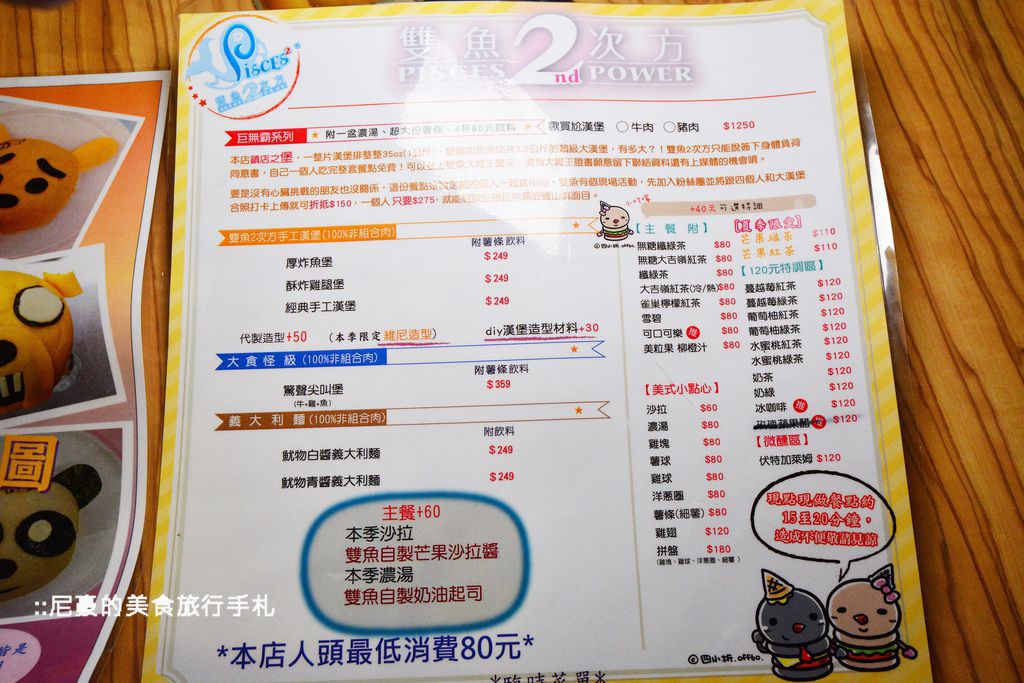 Pisces²
雙魚2次方
雙魚2nd次方
PISCES 2nd POWER
巨無霸系列 ★ 附一盆濃湯、超大份薯條、4杯80元飲料 ★ 歡買尬漢堡 ○牛肉 ○豬肉 $1250
本店鎮店之堡,一整片漢堡排整整35oz(1公斤)、整買加起來總共3.5公斤的超級大漢堡,有多大?!雙魚2次方只能說簽下身體負荷
同意書,自己一個人吃完整套餐點免費!可以登上雙魚大胃王寶座,還有大胃王證書願意留下聯絡資料還有上媒體的機會唷。
要是沒有心臟挑戰的朋友也沒關係,這份餐點是設定給四個人一起食用的。雙魚有個現場活動,先加入粉絲團並將跟四個人和大漢堡
合照打卡上傳就可折抵$150,一個人只要$275,就能
雙魚2次方手工漢堡(100%非組合肉)
附薯條飲料
厚炸魚堡 $249
酥炸雞腿堡 $249
經典手工漢堡 $249
代製造型+50 (本季限定 維尼造型) diy漢堡造型材料+30
大食怪級(100%非組合肉)
附薯條飲料
驚聲尖叫堡 $359
(牛+雞+魚)
義大利麵(100%非組合肉)
附飲料
魷物白醬義大利麵 $249
魷物青醬義大利麵 $249
主餐+60
本季沙拉
雙魚自製芒果沙拉醬
本季濃湯
雙魚自製奶油起司
*本店人頭最低消費80元*
*臨時菜單*
+40元可選特調
【主餐附】
無糖纖綠茶 $80
無糖大吉嶺紅茶 $80
纖綠茶 $80
大吉嶺紅茶(冷/熱) $80
雀巢檸檬紅茶 $80
雪碧 $80
可口可樂 推 $80
美粒果 柳橙汁 $80
【美式小點心】
沙拉 $60
濃湯 $80
雞塊 $80
薯球 $80
雞球 $80
洋蔥圈 $80
薯條(細薯) $80
雞翅 $120
拼盤 $180
(雞塊、雞球、洋蔥圈、細薯)
【夏季限定】
芒果綠茶 $110
芒果紅茶 $110
【120元特調區】
蔓越莓紅茶 $120
蔓越莓綠茶 $120
葡萄柚紅茶 $120
葡萄柚綠茶 $120
水蜜桃紅茶 $120
水蜜桃綠茶 $120
奶茶 $120
奶綠 $120
冰咖啡 推 $120
玫瑰蘋果醋 推 $120
【微醺區】
伏特加萊姆 $120
現點現做餐點約
15至20分鐘,
造成不便敬請見諒
© 四小折.off60.
圖
::尼豪的美食旅行手札